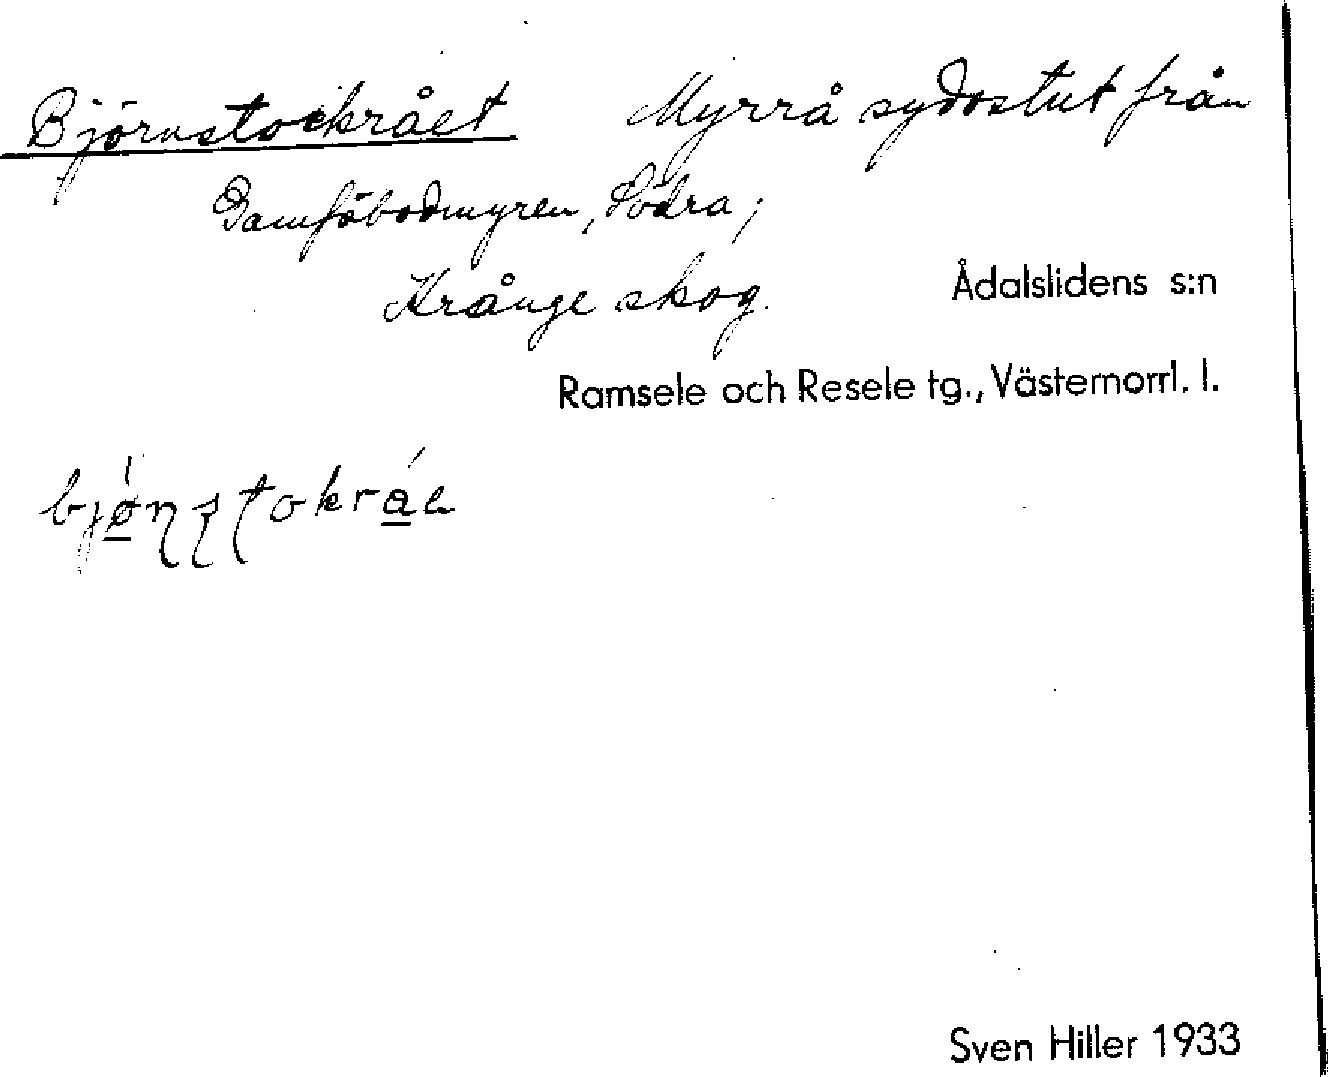 Björnstockrået Myrrå sydostut från
Gamfäbodmyren, Södra;
Krånge skog.
Ådalslidens s:n
Ramsele och Resele tg., Västernorrl. l.
Sven Hiller 1933